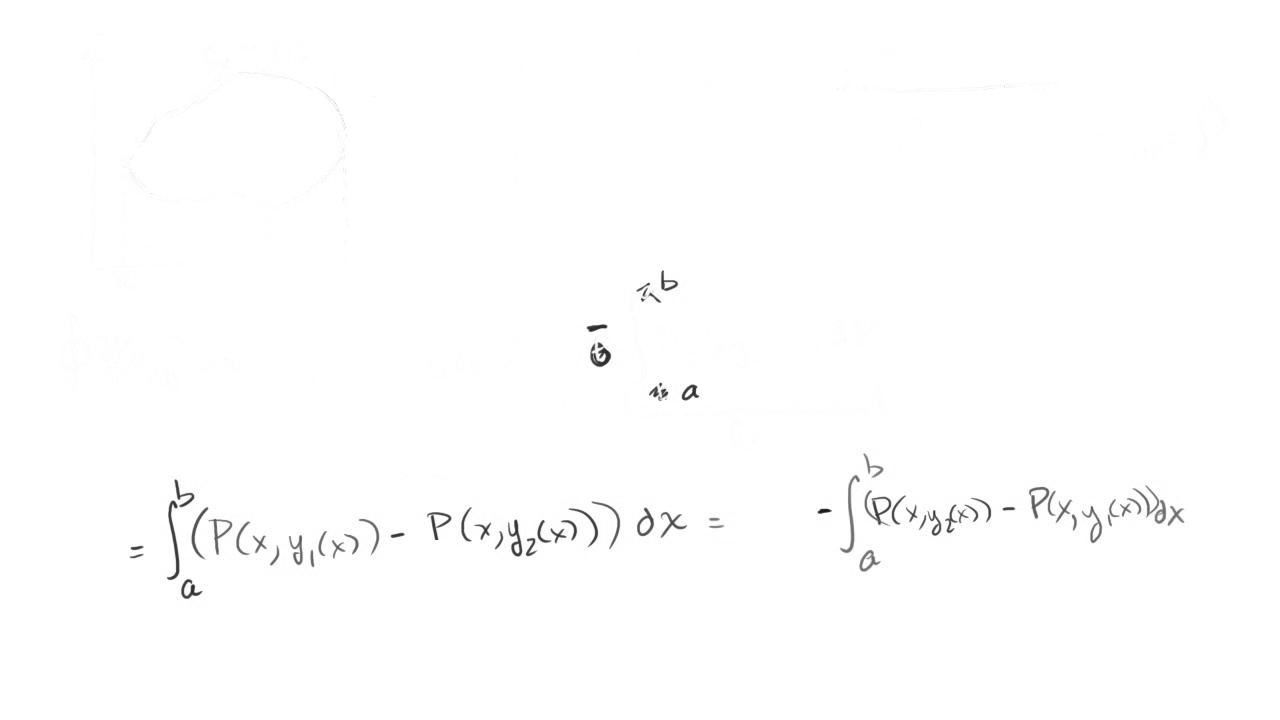 b
-
a
= ∫_a^b (P(x, y₁(x)) - P(x, y₂(x))) dx = - ∫_a^b (P(x, y₂(x)) - P(x, y₁(x))) dx